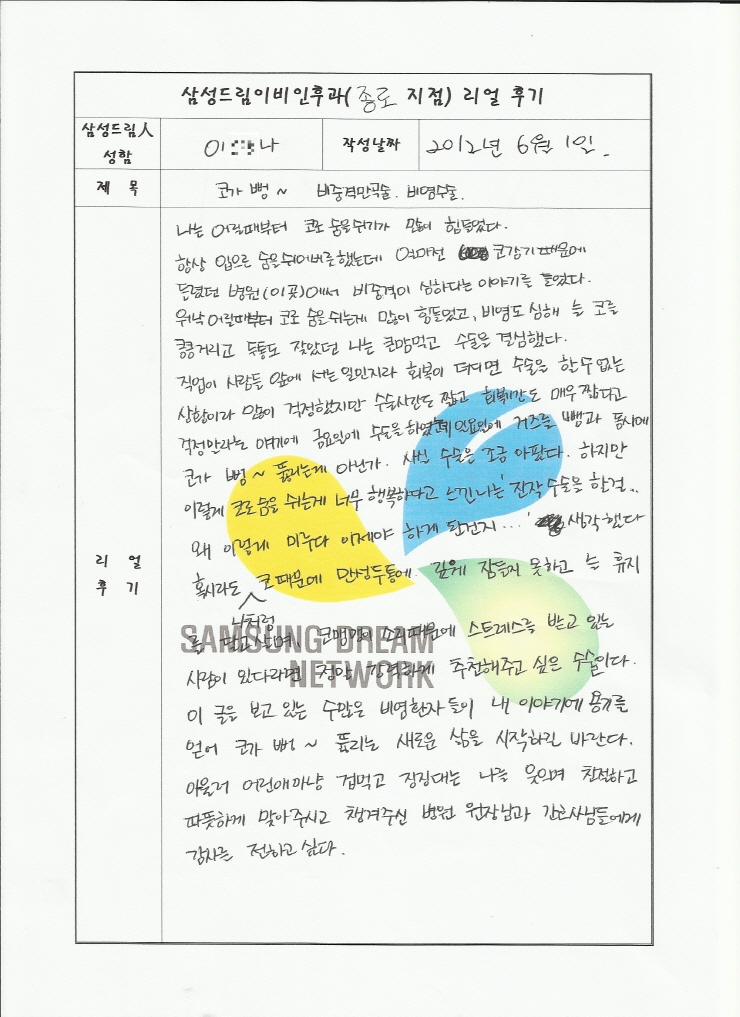 삼성드림이비인후과(종로 지점) 리얼 후기
삼성드림人 성함
이 나
작성날짜
2012년 6월 1일.
제 목
코가 뻥~ 비중격만곡술. 비염수술.
리 얼 후 기
나는 어릴때부터 코로 숨을쉬기가 많이 힘들었다.
항상 입으로 숨을쉬어버릇했는데 얼마전 코감기 때문에
들렸던 병원(이곳)에서 비중격이 심하다는 이야기를 들었다.
워낙 어릴때부터 코로 숨을 쉬는게 많이 힘들었고, 비염도 심해 늘 코를
킁킁거리고 두통도 잦았던 나는 큰맘먹고 수술을 결심했다.
직업이 사람들 앞에 서는 일인지라 회복이 더디면 수술을 할수 없는
상황이라 많이 걱정했지만 수술시간도 짧고 회복기간도 매우 짧다고
걱정말라는 얘기에 금요일에 수술을 하였는데 일요일에 거즈를 뺌과 동시에
코가 뻥~ 뚫리는게 아닌가. 사실 수술은 조금 아팠다. 하지만
이렇게 코로 숨을 쉬는게 너무 행복하다고 느낀 나는 '진작 수술을 한걸..
왜 이렇게 미루다 이제야 하게 된건지...' 생각했다
혹시라도 나처럼 코때문에 만성두통에. 깊에 잠들지 못하고 늘 휴지
를 달고살며, 코맹맹이 소리때문에 스트레스를 받고 있는
사람이 있다라면 정말 강력하게 추천해주고 싶은 수술이다.
이 글을 보고 있는 수많은 비염환자 들이 내 이야기에 용기를
얻어 코가 뻥~ 뚫리는 새로운 삶을 시작하길 바란다.
아울러 어린애 마냥 겁먹고 징징대는 나를 웃으며 친절하고
따뜻하게 맞아주시고 챙겨주신 병원 원장님과 간호사님들에게
감사를 전하고 싶다.
SAMSUNG DREAM
NETWORK